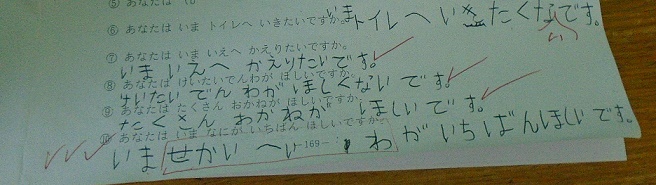 ⑤ あなたは
⑥ あなたは いま トイレへ いきたいですか。
いまトイレへ いきたくなです。
い
⑦ あなたは いま いえへ かえりたいですか。
いま いえへ かえりたいです。
⑧ あなたは けいたいでんわが ほしいですか。
けいたい でん わが ほしくない です。
⑨ あなたは たくさん おかねが ほしいですか。
たくさん わかねが ほしい です。
⑩ あなたは いま なにが いちばん ほしいですか。
いま せかい へい わ が いちばんほしい です。
-169-